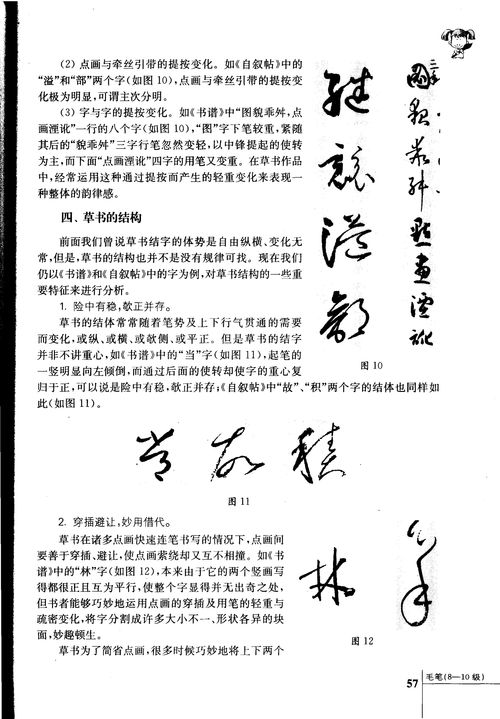 (2) 点画与牵丝引带的提按变化。如《自叙帖》中的
“溢”和“部”两个字(如图 10),点画与牵丝引带的提按变
化极为明显,可谓主次分明。
(3) 字与字的提按变化。如《书谱》中“图貌乖舛,点
画湮讹”一行的八个字(如图 10),“图”字下笔较重,紧随
其后的“貌乖舛”三字行笔忽然变轻,以中锋提起的使转
为主,而下面“点画湮讹”四字的用笔又变重。在草书作品
中,经常运用这种通过提按而产生的轻重变化来表现一
种整体的韵律感。
四、草书的结构
前面我们曾说草书结字的体势是自由纵横、变化无
常,但是,草书的结构也并不是没有规律可找。现在我们
仍以《书谱》和《自叙帖》中的字为例,对草书结构的一些重
要特征来进行分析。
1. 险中有稳,欹正并存。
草书的结体常常随着笔势及上下行气贯通的需要
而变化,或纵、或横、或欹侧、或平正。但是草书的结字
并非不讲重心,如《书谱》中的“当”字(如图 11),起笔的
一竖明显向左倾倒,而通过后面的使转却使字的重心复
归于正,可以说是险中有稳,欹正并存;《自叙帖》中“故”、“积”两个字的结体也同样如
此(如图 11)。
图 10
图 11
2. 穿插避让,妙用借代。
草书在诸多点画快速连笔书写的情况下,点画间
要善于穿插、避让,使点画萦绕却又互不相撞。如《书
谱》中的“林”字(如图 12),本来由于它的两个竖画写
得都很正且互为平行,使整个字显得并无出奇之处,
但书者能够巧妙地运用点画的穿插及用笔的轻重与
疏密变化,将字分割成许多大小不一、形状各异的块
面,妙趣顿生。
草书为了简省点画,很多时候巧妙地将上下两个
图 12
林
溢
部
图貌乖舛点画湮讹
当故积
57
毛笔(8—10 级)